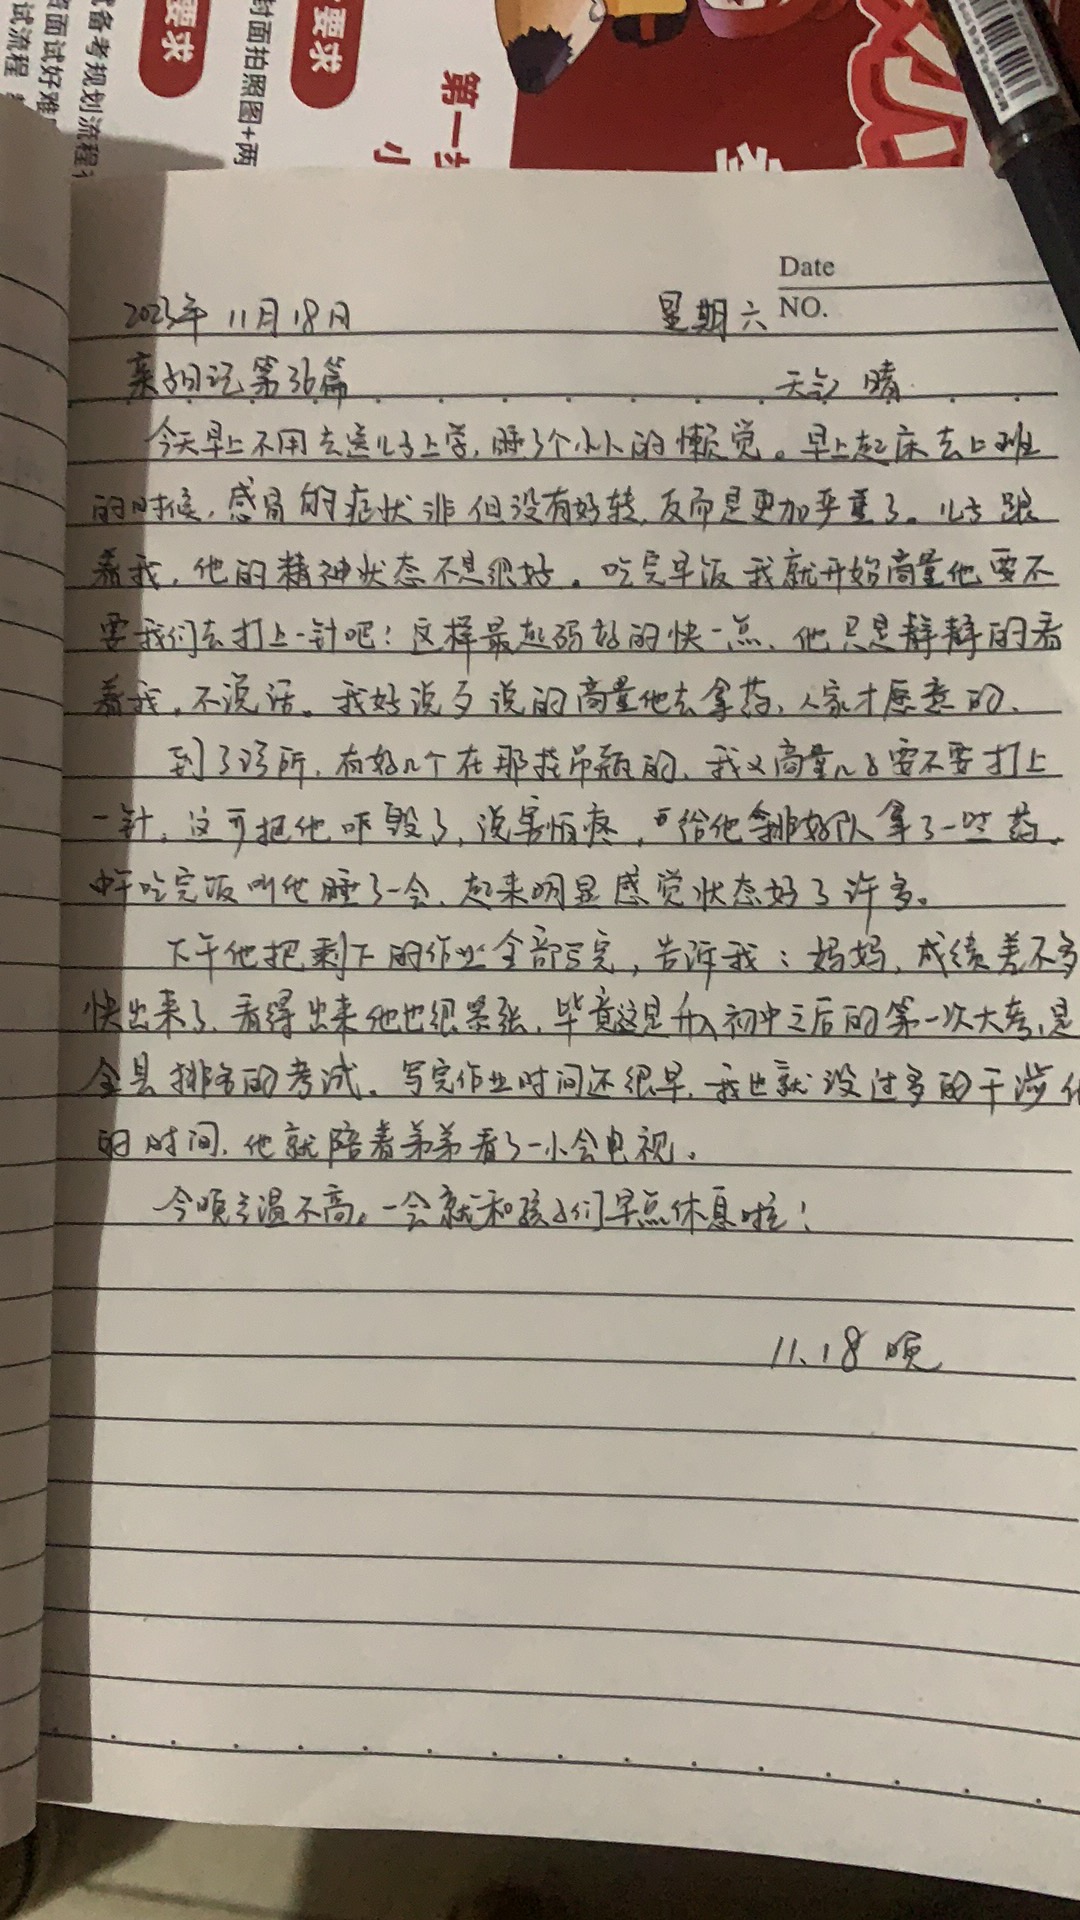 试备考规划流程
面试好难
试流程
要求
要求
封面拍照图+两
第一
小
Date
NO.
2023年11月18日 星期六
亲子日记第36篇 天气 晴
今天早上不用去送儿子上学,睡了个小小的懒觉。早上起床去上班
的时候,感冒的症状非但没有好转,反而是更加严重了。儿子跟
着我,他的精神状态不是很好。吃完早饭我就开始商量他要不
要我们去打上一针吧!这样最起码好的快一点、他只是静静的看
着我,不说话。我好说歹说的商量他去拿药,人家才愿意的、
到了诊所,有好几个在那挂吊瓶的,我又商量儿子要不要打上
一针,这可把他吓毁了,说害怕疼,给他排好队拿了一些药、
中午吃完饭叫他睡了一会、起来明显感觉状态好了许多。
下午他把剩下的作业全部写完,告诉我:妈妈,成绩差不多
快出来了、看得出来他也很紧张,毕竟这是升入初中之后的第一次大考,是
全县排名的考试。写完作业时间还很早,我也就没过多的干涉他
的时间,他就陪着弟弟看了一小会电视。
今晚气温不高。一会就和孩子们早点休息啦!
11.18 晚